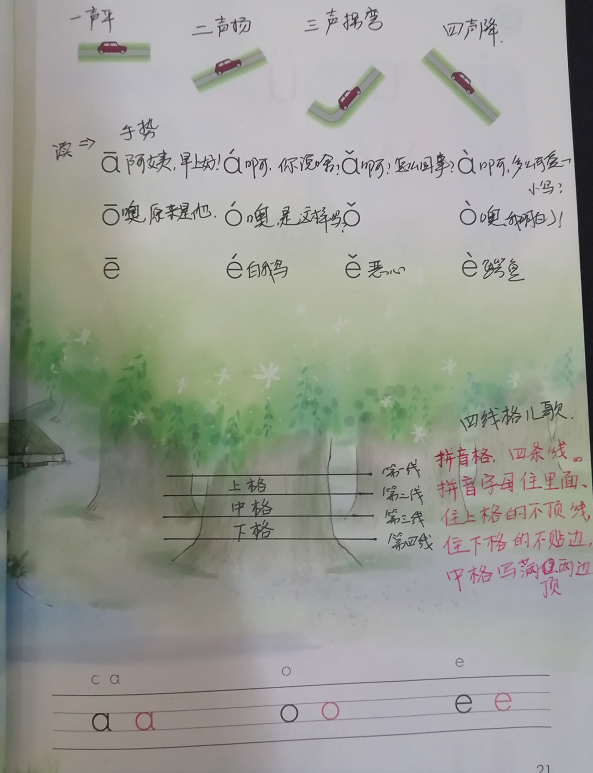 一声平 二声扬 三声拐弯 四声降.
读⇒ 手势
ā 阿姨,早上好! á 啊,你说啥? ǎ 啊?怎么回事? à 啊,多么可爱一
小鸟?
ō 噢,原来是他. ó 噢,是这样吗? ǒ ò 噢,我明白了!
ē é 白鹅 ě 恶心 è 鳄鱼
四线格儿歌.
拼音格,四条线。
拼音字母住里面、
住上格的不顶线,
住下格的不贴边,
中格写满两边
顶
第一线
上格 第二线
中格 第三线
下格 第四线
c a o e
a a o o e e
21